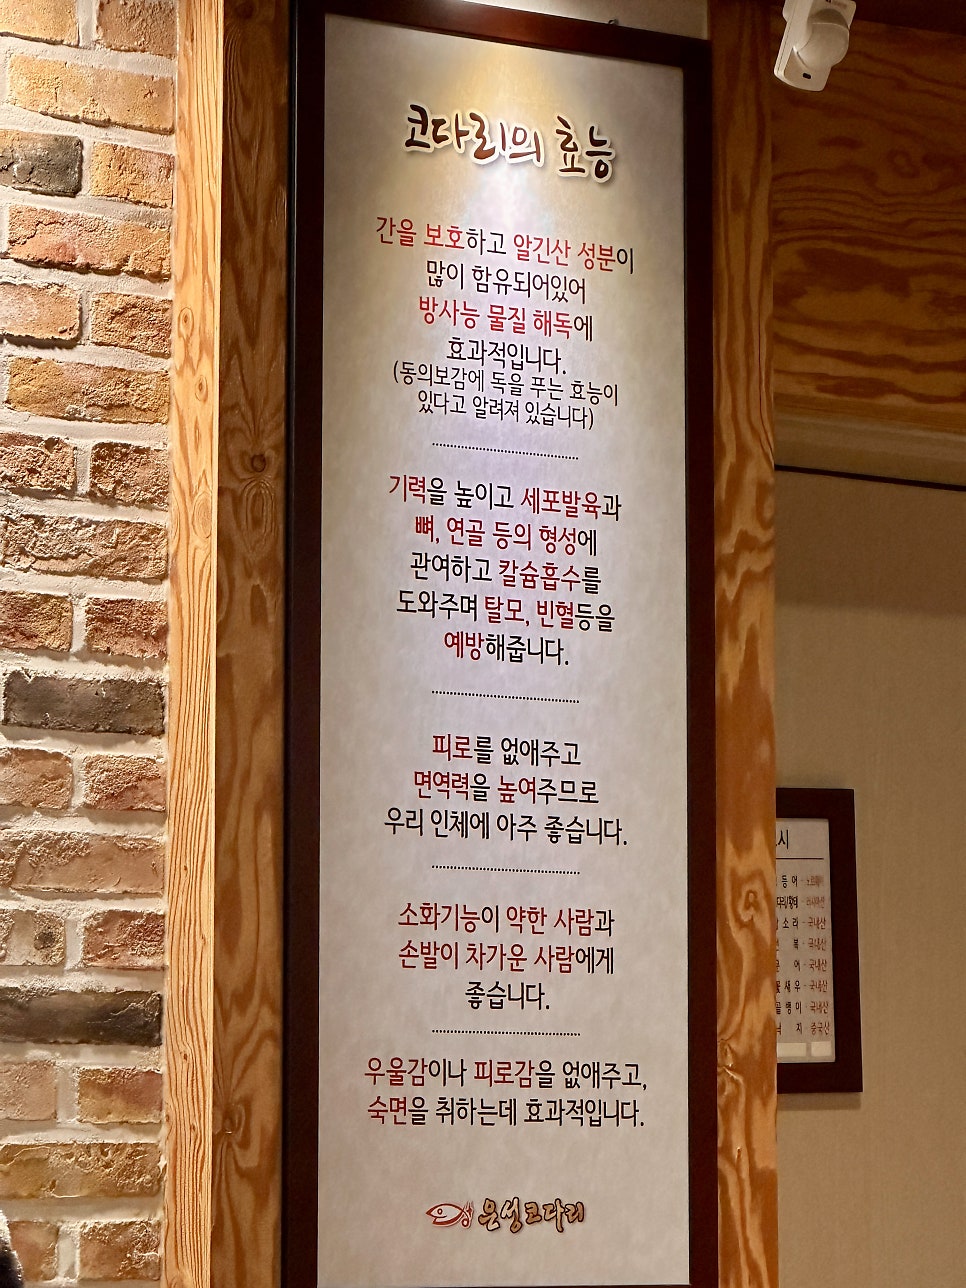 코다리의 효능
간을 보호하고 알긴산 성분이
많이 함유되어있어
방사능 물질 해독에
효과적입니다.
(동의보감에 독을 푸는 효능이
있다고 알려져 있습니다)
기력을 높이고 세포발육과
뼈, 연골 등의 형성에
관여하고 칼슘흡수를
도와주며 탈모, 빈혈등을
예방해줍니다.
피로를 없애주고
면역력을 높여주므로
우리 인체에 아주 좋습니다.
소화기능이 약한 사람과
손발이 차가운 사람에게
좋습니다.
우울감이나 피로감을 없애주고,
숙면을 취하는데 효과적입니다.
은성코다리
시
등 어 - 노르웨이
다리/황태 - 러시아산
소 라 - 국내산
복 - 국내산
어 - 국내산
새 우 - 국내산
골 뱅 이 - 국내산
지 - 중국산